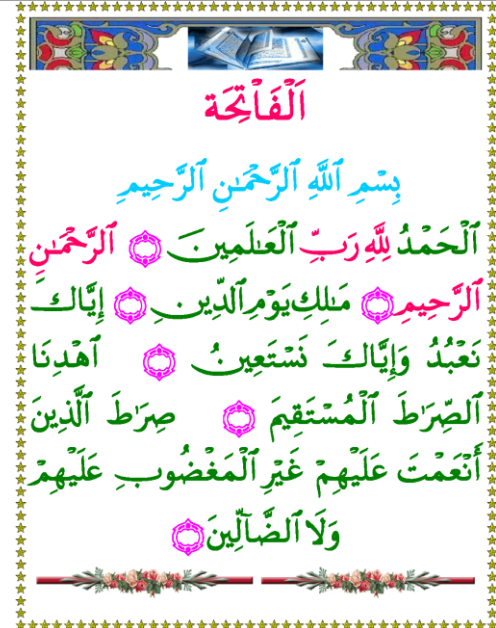 اَلْفَاْتِحَة
بِسْمِ ٱللَّهِ ٱلرَّحْمَـٰنِ ٱلرَّحِيمِ
ٱلْحَمْدُ لِلَّهِ رَبِّ ٱلْعَـٰلَمِينَ ۝ ٱلرَّحْمَـٰنِ
ٱلرَّحِيمِ ۝ مَـٰلِكِ يَوْمِ ٱلدِّينِ ۝ إِيَّاكَ
نَعْبُدُ وَإِيَّاكَ نَسْتَعِينُ ۝ ٱهْدِنَا
ٱلصِّرَٰطَ ٱلْمُسْتَقِيمَ ۝ صِرَٰطَ ٱلَّذِينَ
أَنْعَمْتَ عَلَيْهِمْ غَيْرِ ٱلْمَغْضُوبِ عَلَيْهِمْ
وَلَا ٱلضَّآلِّينَ ۝